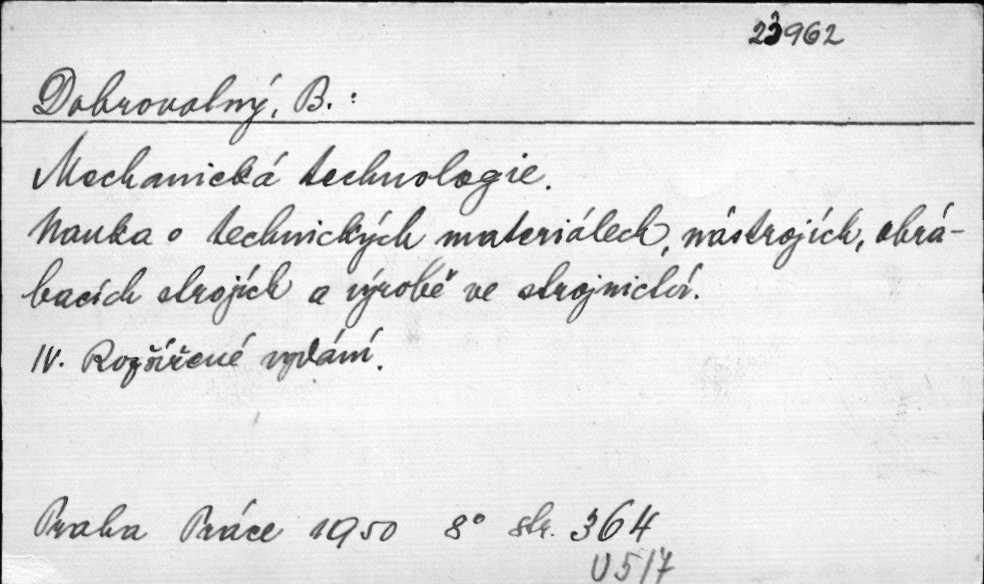 23962
Dobrovolný, B.:
Mechanická technologie.
Nauka o technických materiálech, nástrojích, obrá-
bacích strojích a výrobě ve strojnictví.
IV. Rozšířené vydání.
Praha Práce 1950 8° str. 364
U 5/7